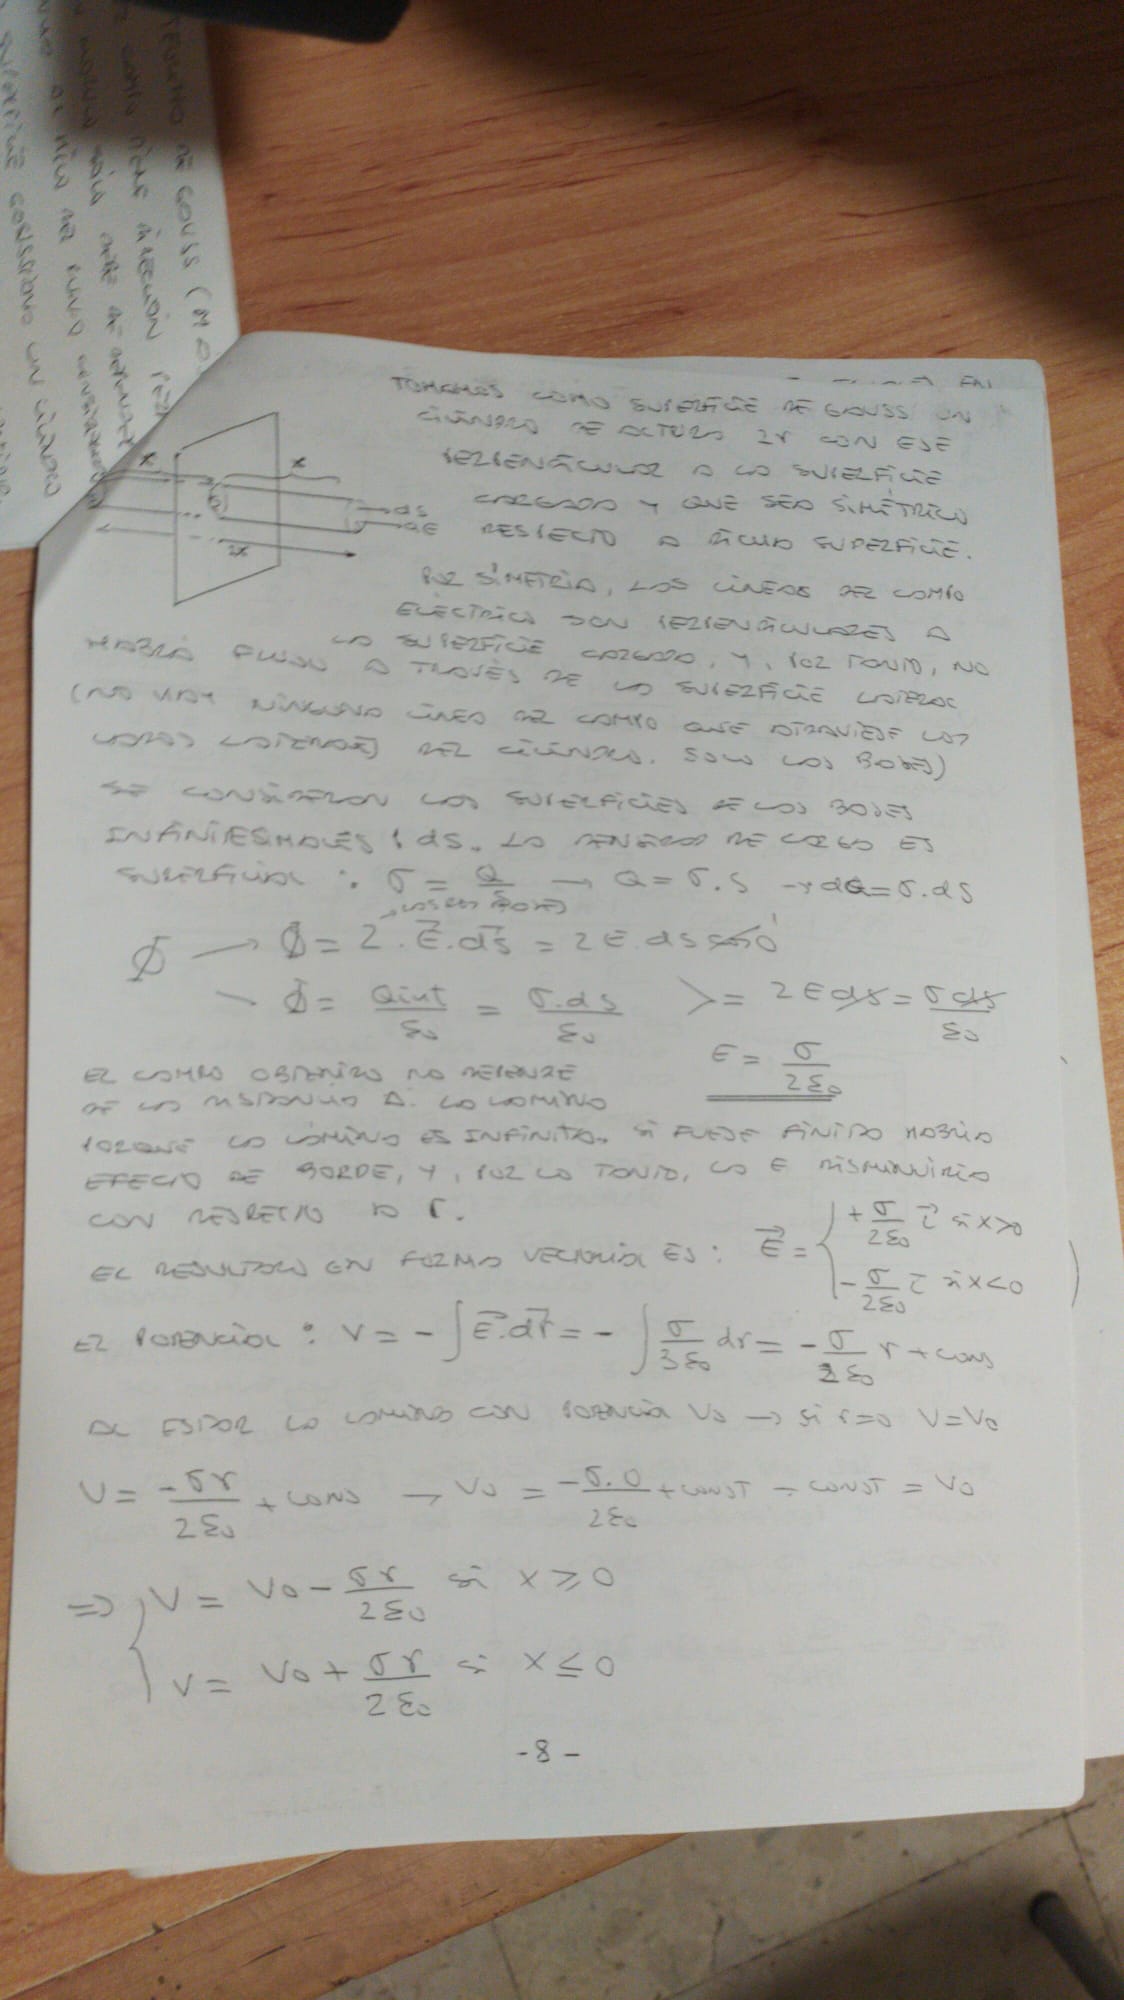 TEOREMA DE GAUSS (M
TOMAMOS COMO SUPERFICIE DE GAUSS UN
CILINDRO DE ALTURA 2r CON EJE
PERPENDICULAR A LA SUPERFICIE
CARGADA Y QUE SEA SIMÉTRICO
RESPECTO A DICHA SUPERFICIE.
x
x
ds
dE
2x
POR SIMETRIA, LAS LINEAS DEL CAMPO
ELÉCTRICO SON PERPENDICULARES A
LA SUPERFICIE CARGADA, Y, POR TANTO, NO
HABRÁ FLUJO A TRAVÉS DE LA SUPERFICIE LATERAL
(NO HAY NINGUNA LINEA DEL CAMPO QUE ATRAVIESE LAS
CARAS LATERALES DEL CILINDRO. SOLO LAS BASES)
SE CONSIDERAN LAS SUPERFICIES DE LAS BASES
INFINITESIMALES, ds. LA DENSIDAD DE CARGA ES
SUPERFICIAL: σ = Q/S → Q = σ.s → dQ = σ.ds
LAS DOS BASES
Φ → Φ = 2.E⃗.ds⃗ = 2E.ds cos0 1
Φ = Qint/ε₀ = σ.ds/ε₀ >= 2Eds = σds/ε₀
E = σ/2ε₀
EL CAMPO OBTENIDO NO DEPENDE
DE LA DISTANCIA A LA LAMINA
PORQUE LA LÁMINA ES INFINITA. SI FUESE FINITA HABRIA
EFECTO DE BORDE, Y, POR LO TANTO, LA E DISMINUIRIA
CON RESPECTO A r.
EL RESULTADO EN FORMA VECTORIAL ES: E⃗ = { +σ/2ε₀ i⃗ si x>0
-σ/2ε₀ i⃗ si x<0
EL POTENCIAL: V = -∫E⃗.dr⃗ = -∫σ/3ε₀ dr = -σ/2ε₀ r + cons
AL ESTAR LA LAMINA CON POTENCIAL V₀ → si r=0 V=V₀
V = -σr/2ε₀ + CONS → V₀ = -σ.0/2ε₀ + CONST → CONST = V₀
⇒ { V = V₀ - σr/2ε₀ si x ≥ 0
V = V₀ + σr/2ε₀ si x ≤ 0
-8-